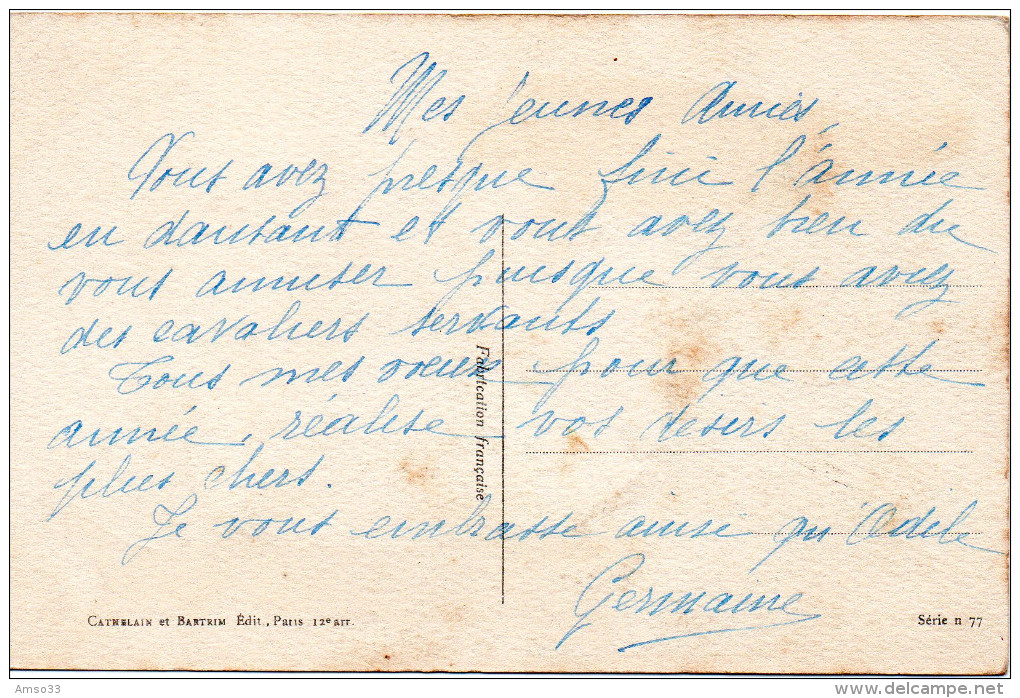 Mes jeunes Amies,
Vous avez presque fini l'année
en dansant et vous avez bien du
vous amuser puisque vous aviez
des cavaliers servants
Tous mes voeux pour que cette
année, réalise vos désirs les
plus chers.
Je vous embrasse ainsi qu'Odile
Germaine
Fabrication française
CATHELAIN et BARTRIM Édit., Paris 12e arr.
Série n 77
Amso33
delcampe.net